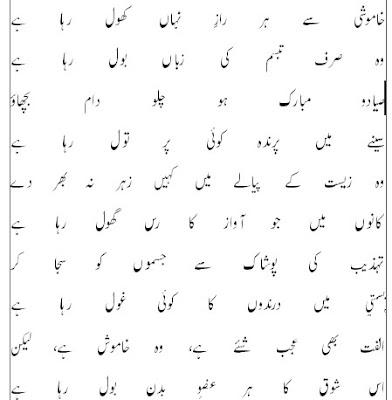 خاموشی سے ہر راز نہاں کھول رہا ہے
وہ صرف تبسم کی زباں بول رہا ہے
صیادو مبارک ہو چلو دام بچھاؤ
سینے میں پرندہ کوئی پر تول رہا ہے
وہ زیست کے پیالے میں کہیں زہر نہ بھر دے
کانوں میں جو آواز کا رس گھول رہا ہے
تہذیب کی پوشاک سے جسموں کو سجا کر
بستی میں درندوں کا کوئی غول رہا ہے
الفت بھی عجب شئے ہے، وہ خاموش ہے، لیکن
اس شوق کا ہر عضوِ بدن بول رہا ہے